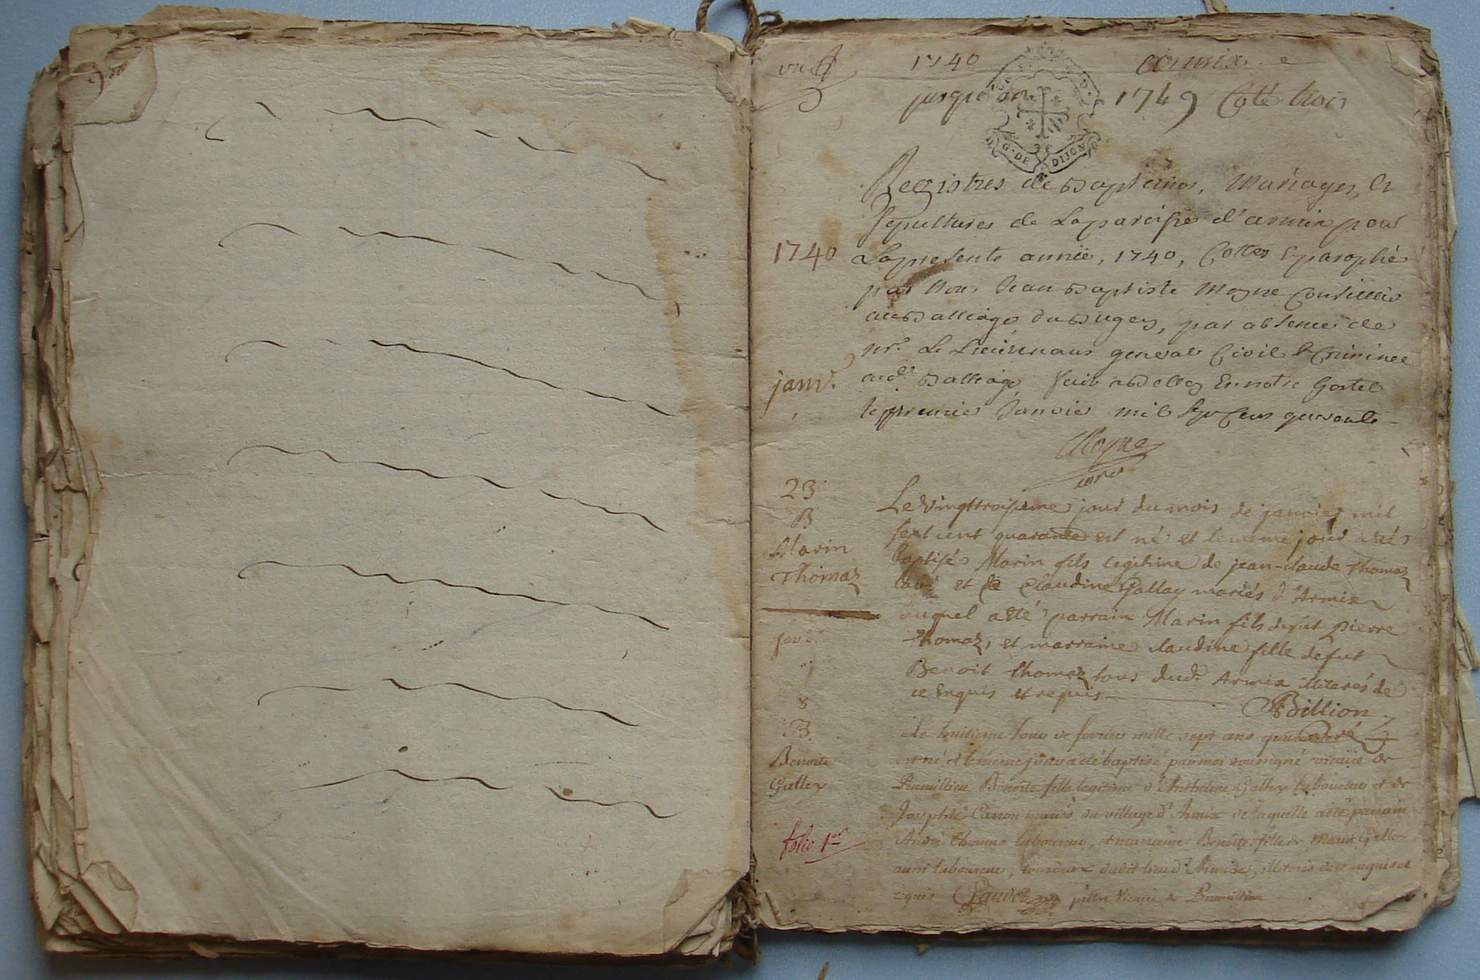 1740 armix
jusque en 1749 Coté trois
G. DE DIJON
Registres de Baptemes, Mariages, Et
Sepultures de Laparoisse d'armix pour
1740
Lapresente année, 1740, Cottés Eparaphé
par Nous Jean Baptiste Moyne Conseiller
au Balliage du Bugey, par absence de
Mr. Le Lieutenant general Civil & Criminel
janv.
aud. Balliage, fait a Belley En notre hostel
le premier Janvier mil Sept Cens quarante
Moyne
23
B
Marin
Thomaz
Le Vingttroisieme jour du mois de janvier mil
sept cent quarante est né et le meme jour a eté
baptisé Marin fils legitime de jean-claude Thomaz
et Claudine Gallay mariés d'Armix
duquel a eté parrain Marin fils defut Pierre
Thomaz, et marraine claudine fille defut
Benoit Thomaz tous dud. Armix illiterés de
ce Enquis et requis
Billion
8
B
Benoite
Galley
Le huitieme Jour de fevrier mille sept cens quarante
est né et le meme jour a eté baptisé par moi soussigné vicaire de
Premillieu Benoite fille legitime d'Anthelme Galley laboureur et de
Josephte Carron mariés du village d'Armix de laquelle a eté parrain
André Thomaz laboureur, et marraine Benoite fille de
folio 1er
laboureur, dudit lieu d'Armix, illiterés
requis pretre Vicaire de Premillieu